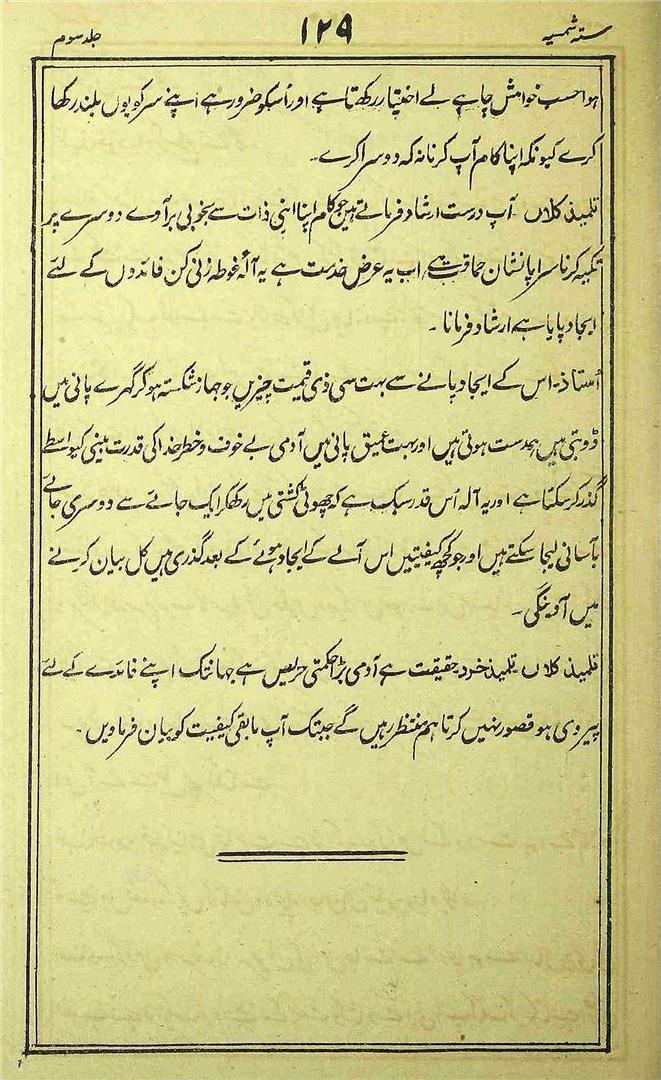 ستہ شمسیہ ۱۲۹ جلد سوم
ہوا حسب خواہش چاہے لے اختیار رکھتا ہے اور اُسکو ضرور ہے اپنے سر کو یوں بلند رکھا
کرے کیونکہ اپنا کام آپ کرنا نہ کہ دوسرا کرے۔
تلمیذ کلاں آپ درست ارشاد فرماتے ہیں جو کام اپنا اپنی ذات سے بخوبی برآوے دوسرے پر
تکیہ کرنا سراپا نشان حماقت ہے اب یہ عرض خدمت ہے یہ آلہ غوطہ زنی کن فائدوں کے لئے
ایجاد پایا ہے ارشاد فرمانا۔
اُستاذ۔ اس کے ایجاد پانے سے بہت سی ذی قیمت چیزیں جو جہاز شکستہ ہو کر گہرے پانی میں
ڈوبتی ہیں ہمدست ہوتی ہیں اور بہت عمیق پانی میں آدمی بے خوف و خطر خدا کی قدرت بینی کیواسطے
گذر کر سکتا ہے اور یہ آلہ اُس قدر سبک ہے کہ چھوٹی کشتی میں رکھکر ایک جائے سے دوسری جائے
بآسانی لیجا سکتے ہیں اور جو کچھ کیفیتیں اس آلے کے ایجاد ہوئے کے بعد گذری ہیں کل بیان کرنے
میں آوینگی۔
تلمیذ کلاں تلمیذ خرد حقیقت ہے آدمی بڑا حکمتی حریص ہے جہانتک اپنے فائدے کے لئے
پیروی ہو قصور نہیں کرتا ہم منتظر رہیں گے جبتک آپ مابقی کیفیت کو بیان فرماویں۔